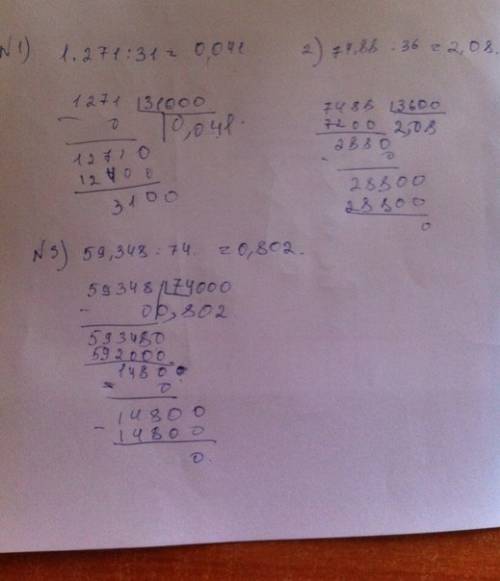 N1) 1.271:31=0,041
1271 31000
- 0 0,041.
12710
12400
3100
2) 74,88:36=2,08.
7488 3600
7200 2,08
2880
- 0
28800
28800
0
N3) 59,348:74.=0,802.
59348 74000
- 0 0,802
593480
592000
14800
- 0
14800
- 14800
0.